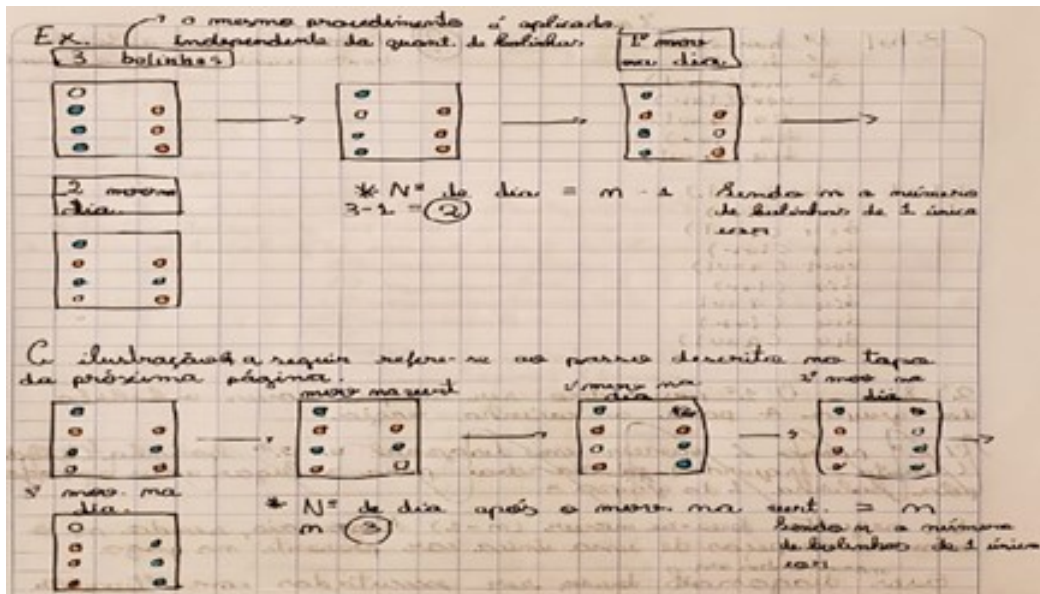 Ex. → o mesmo procedimento é aplicado
independente da quant. de bolinhas
3 bolinhas
1º mov
na dia.
2 mov na
dia.
* Nº de dia = n - 1 Sendo n a número
3-1 = 2 de bolinhas de 1 única
A ilustração a seguir refere-se ao passo descrito no
da próxima página.
mov na vert
1º mov na
dia
2º mov na
dia
3º mov. na
dia.
* Nº de dia após o mov. na vert. = n
n 3
Sendo n a número
de bolinhas de 1 única